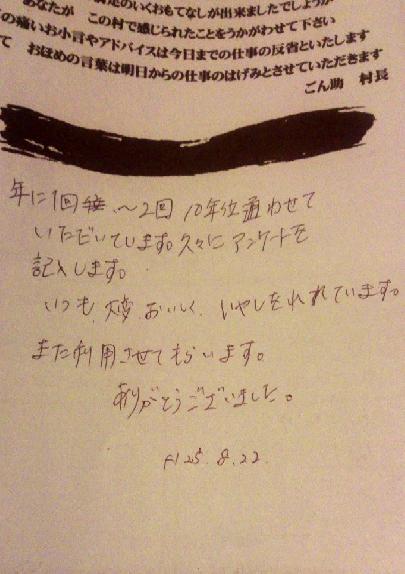 足のいくおもてなしが出来ましたでしょうか
あなたが この村で感じられたことをうかがわせて下さい
の痛いお小言やアドバイスは今日までの仕事の反省といたします
て おほめの言葉は明日からの仕事のはげみとさせていただきます
ごん助 村長
年に1回 〜2回 10年位通わせて
いただいています。久々にアンケートを
記入します。
いつも、大変、おいしく、いやしをれれています。
また利用させてもらいます。
ありがとうございました。
H25.8.22.